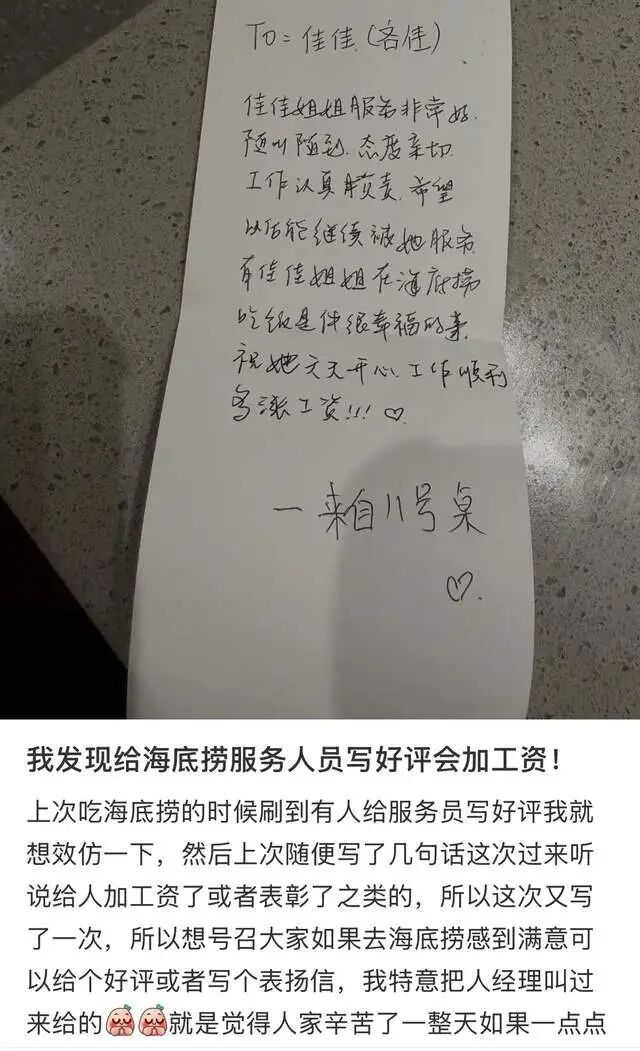 To = 佳佳(客佳)
佳佳姐姐服务非常好.
随叫随到.态度亲切.
工作认真负责.希望
以后能继续被她服务.
有佳佳姐姐在海底捞
吃饭是件很幸福的事.
祝她天天开心.工作顺利
多涨工资!!! ♡
一来自11号桌
♡.
我发现给海底捞服务人员写好评会加工资!
上次吃海底捞的时候刷到有人给服务员写好评我就
想效仿一下,然后上次随便写了几句话这次过来听
说给人加工资了或者表彰了之类的,所以这次又写
了一次,所以想号召大家如果去海底捞感到满意可
以给个好评或者写个表扬信,我特意把人经理叫过
来给的就是觉得人家辛苦了一整天如果一点点